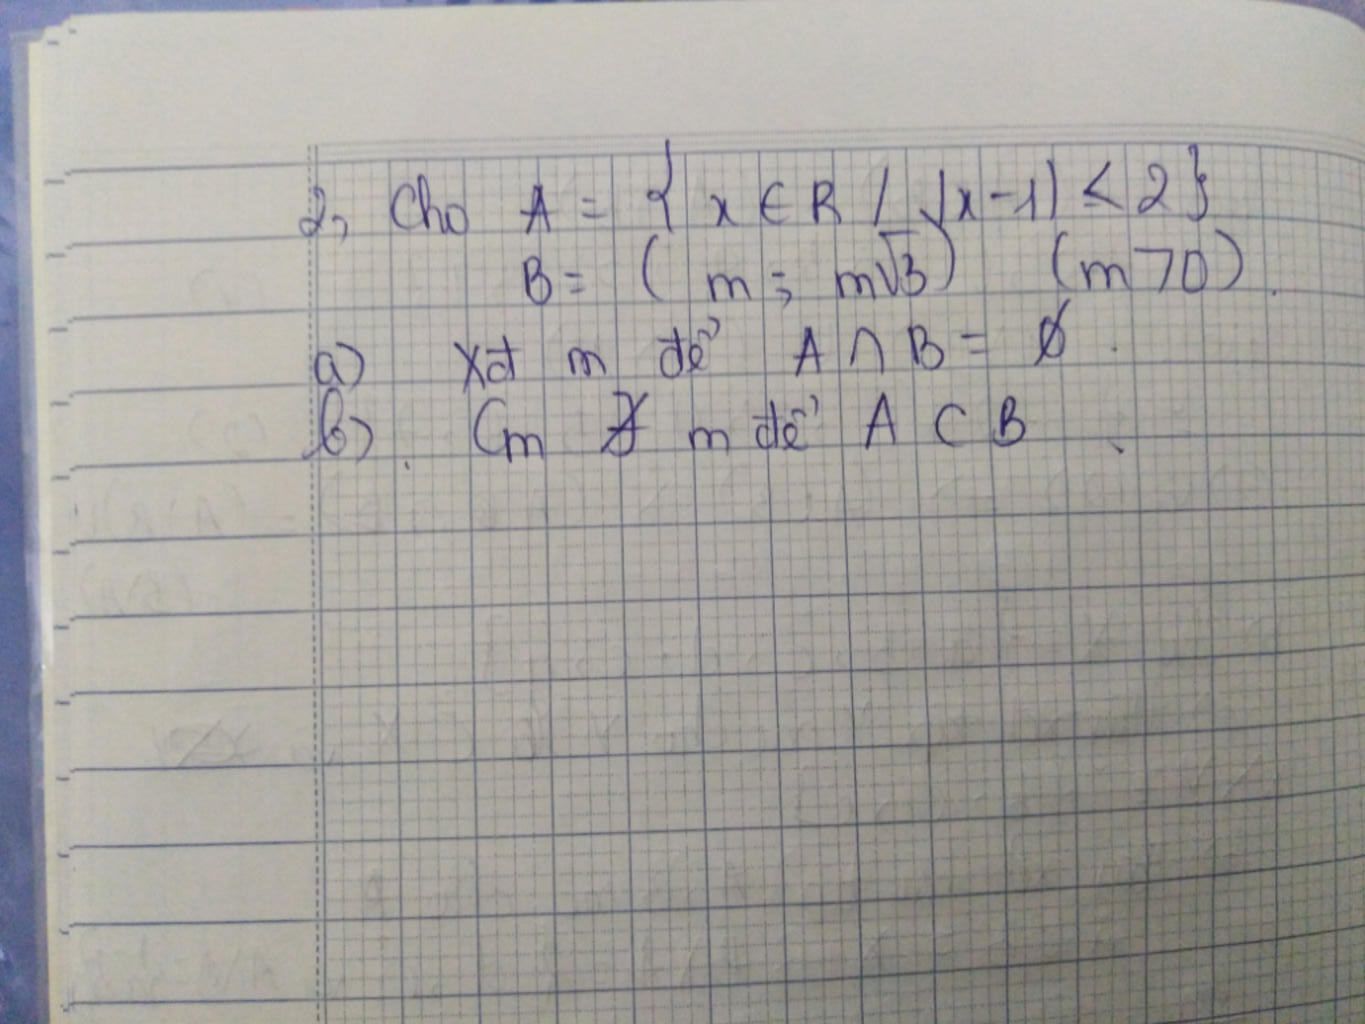 2, Cho A = { x ∈ R / |x-1| < 2}
B = ( m ; m√3 ) (m > 0).
a) Xđ m để A ∩ B = ∅.
b). Cm ∄ m để A ⊂ B.